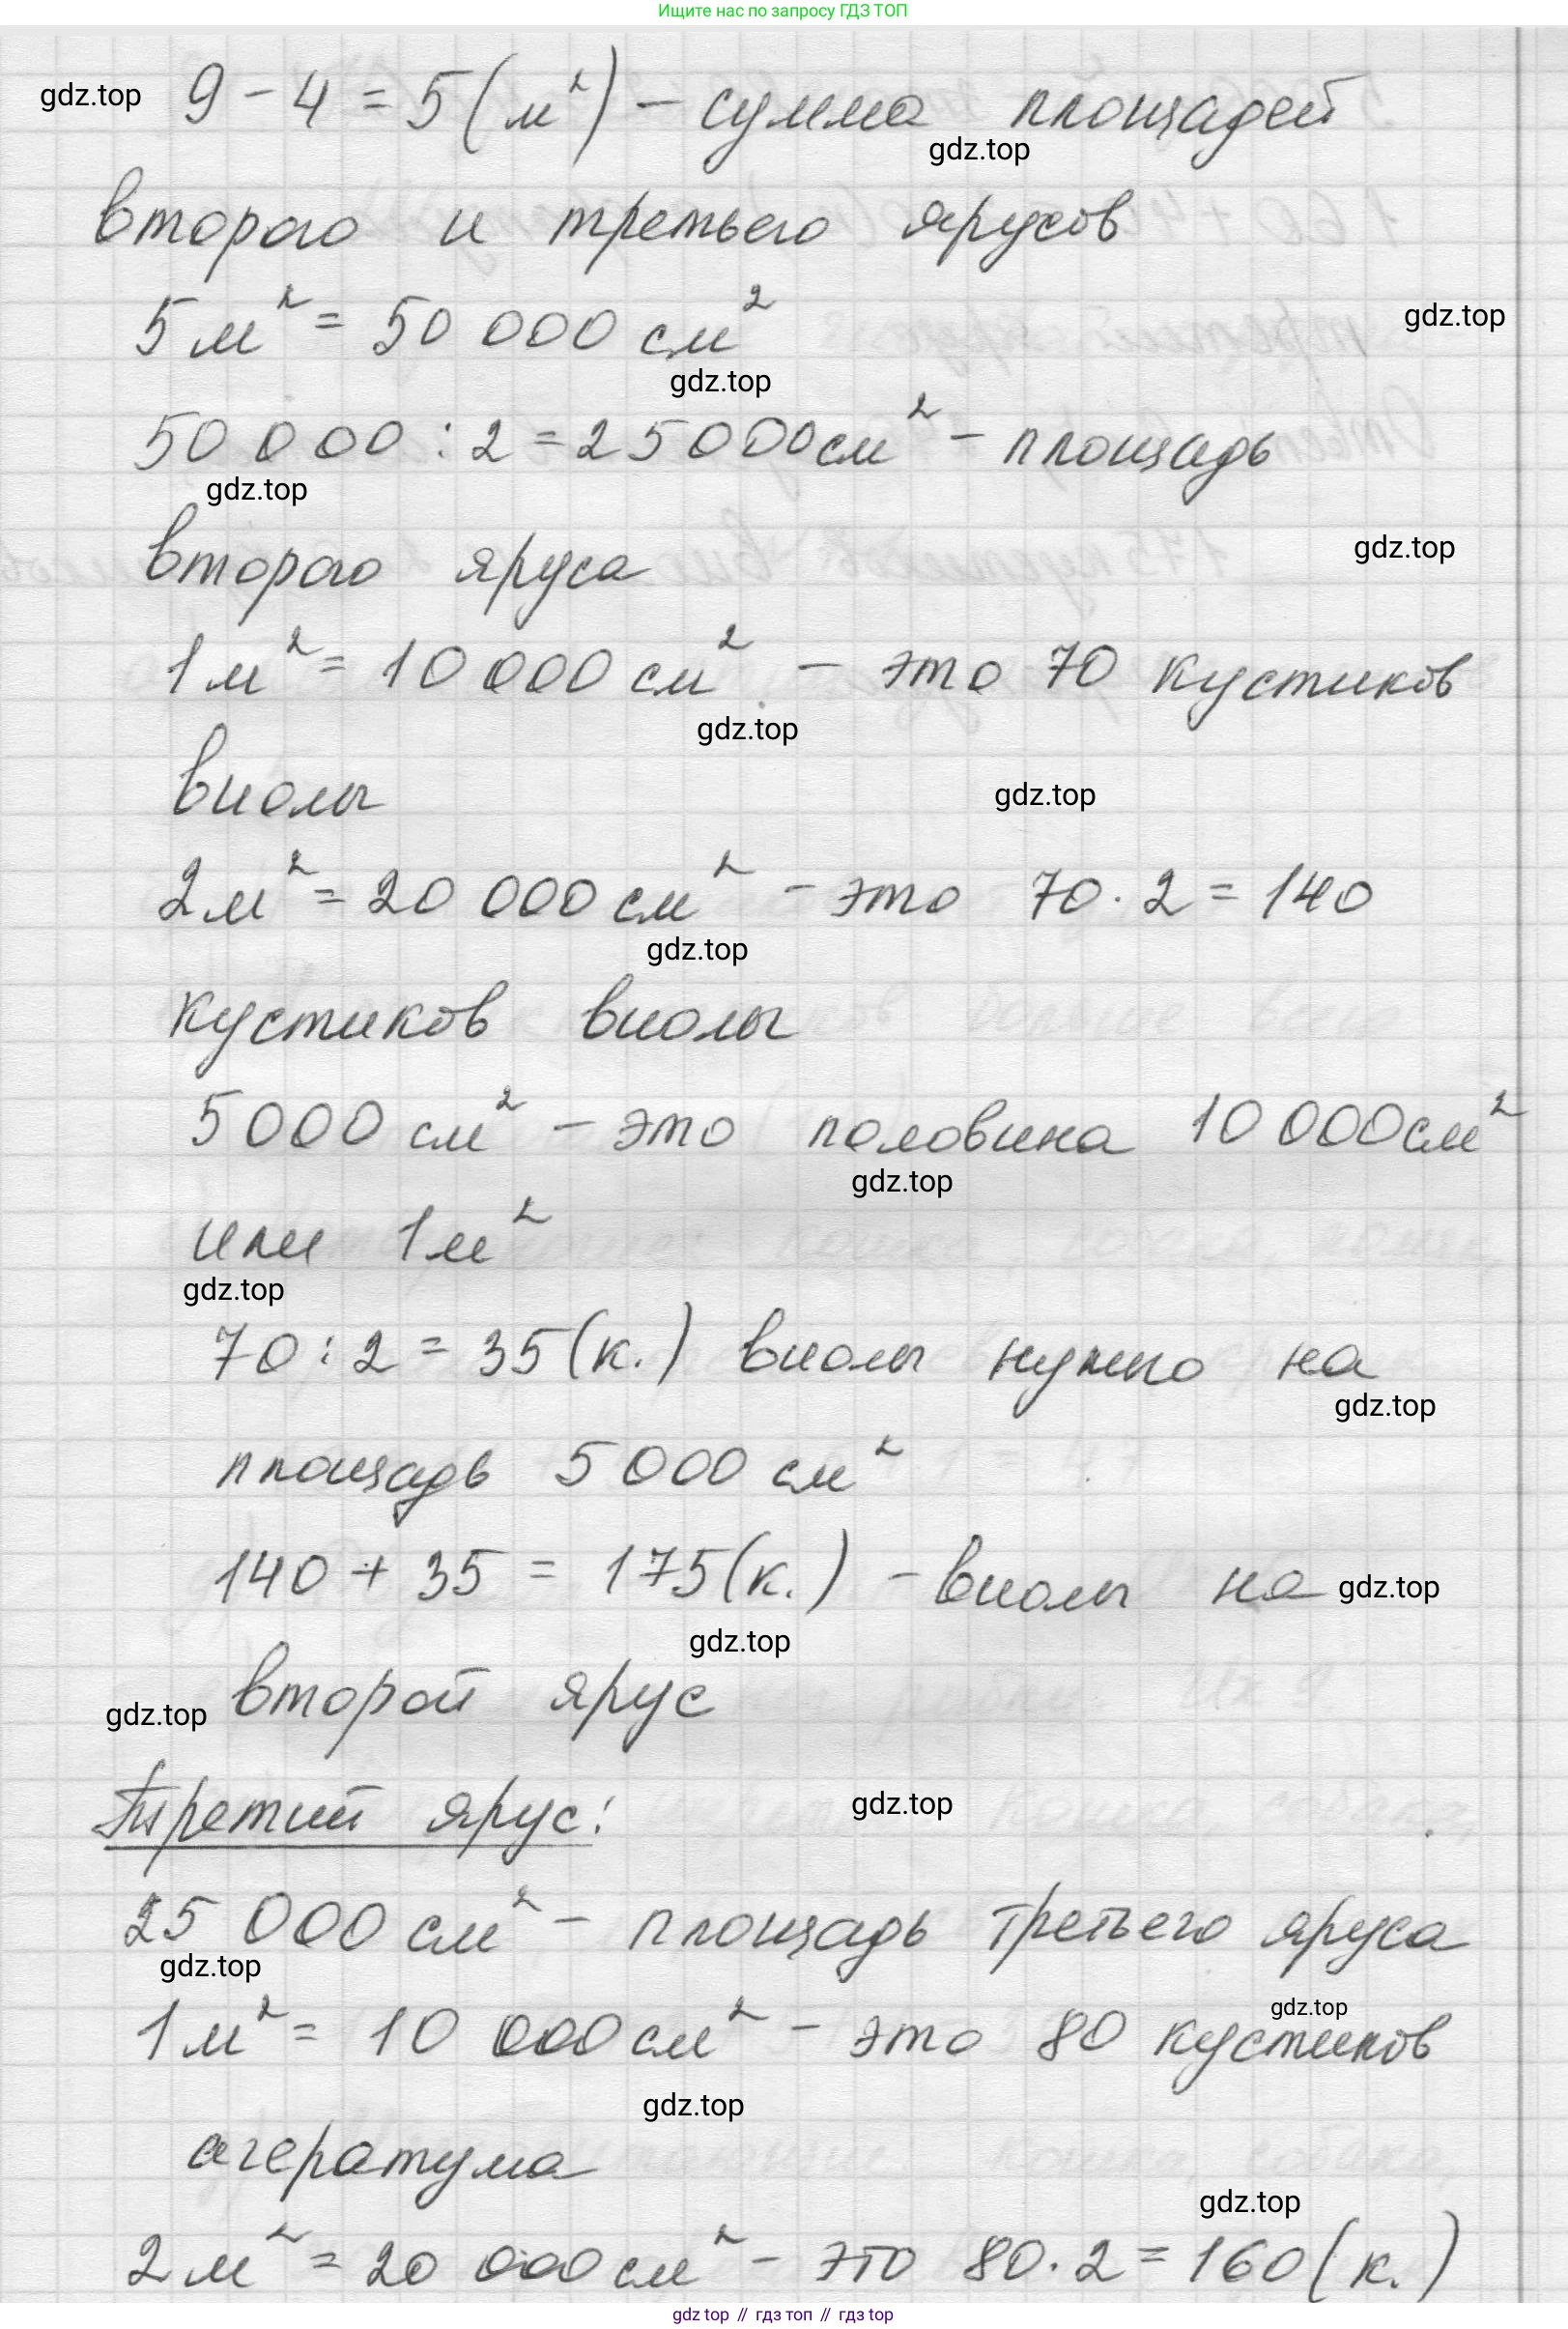 Ищите нас по запросу ГДЗ ТОП
gdz.top 9 - 4 = 5 (м²) - сумма площадей
gdz.top
второго и третьего ярусов
5 м² = 50 000 см² gdz.top
gdz.top
50 000 : 2 = 25 000 см² - площадь
gdz.top
второго яруса gdz.top
1 м² = 10 000 см² - это 70 кустиков
gdz.top
виолы gdz.top
2 м² = 20 000 см² - это 70 · 2 = 140
gdz.top
кустиков виолы
5 000 см² - это половина 10 000 см²
gdz.top
или 1 м²
gdz.top
70 : 2 = 35 (к.) виолы нужно на
gdz.top
площадь 5 000 см²
140 + 35 = 175 (к.) - виолы на gdz.top
gdz.top
gdz.top второй ярус
Третий ярус: gdz.top
25 000 см² - площадь третьего яруса
gdz.top
gdz.top
1 м² = 10 000 см² - это 80 кустиков
gdz.top
агератума
gdz.top
2 м² = 20 000 см² - это 80 · 2 = 160 (к.)
gdz top // гдз топ // гдз top